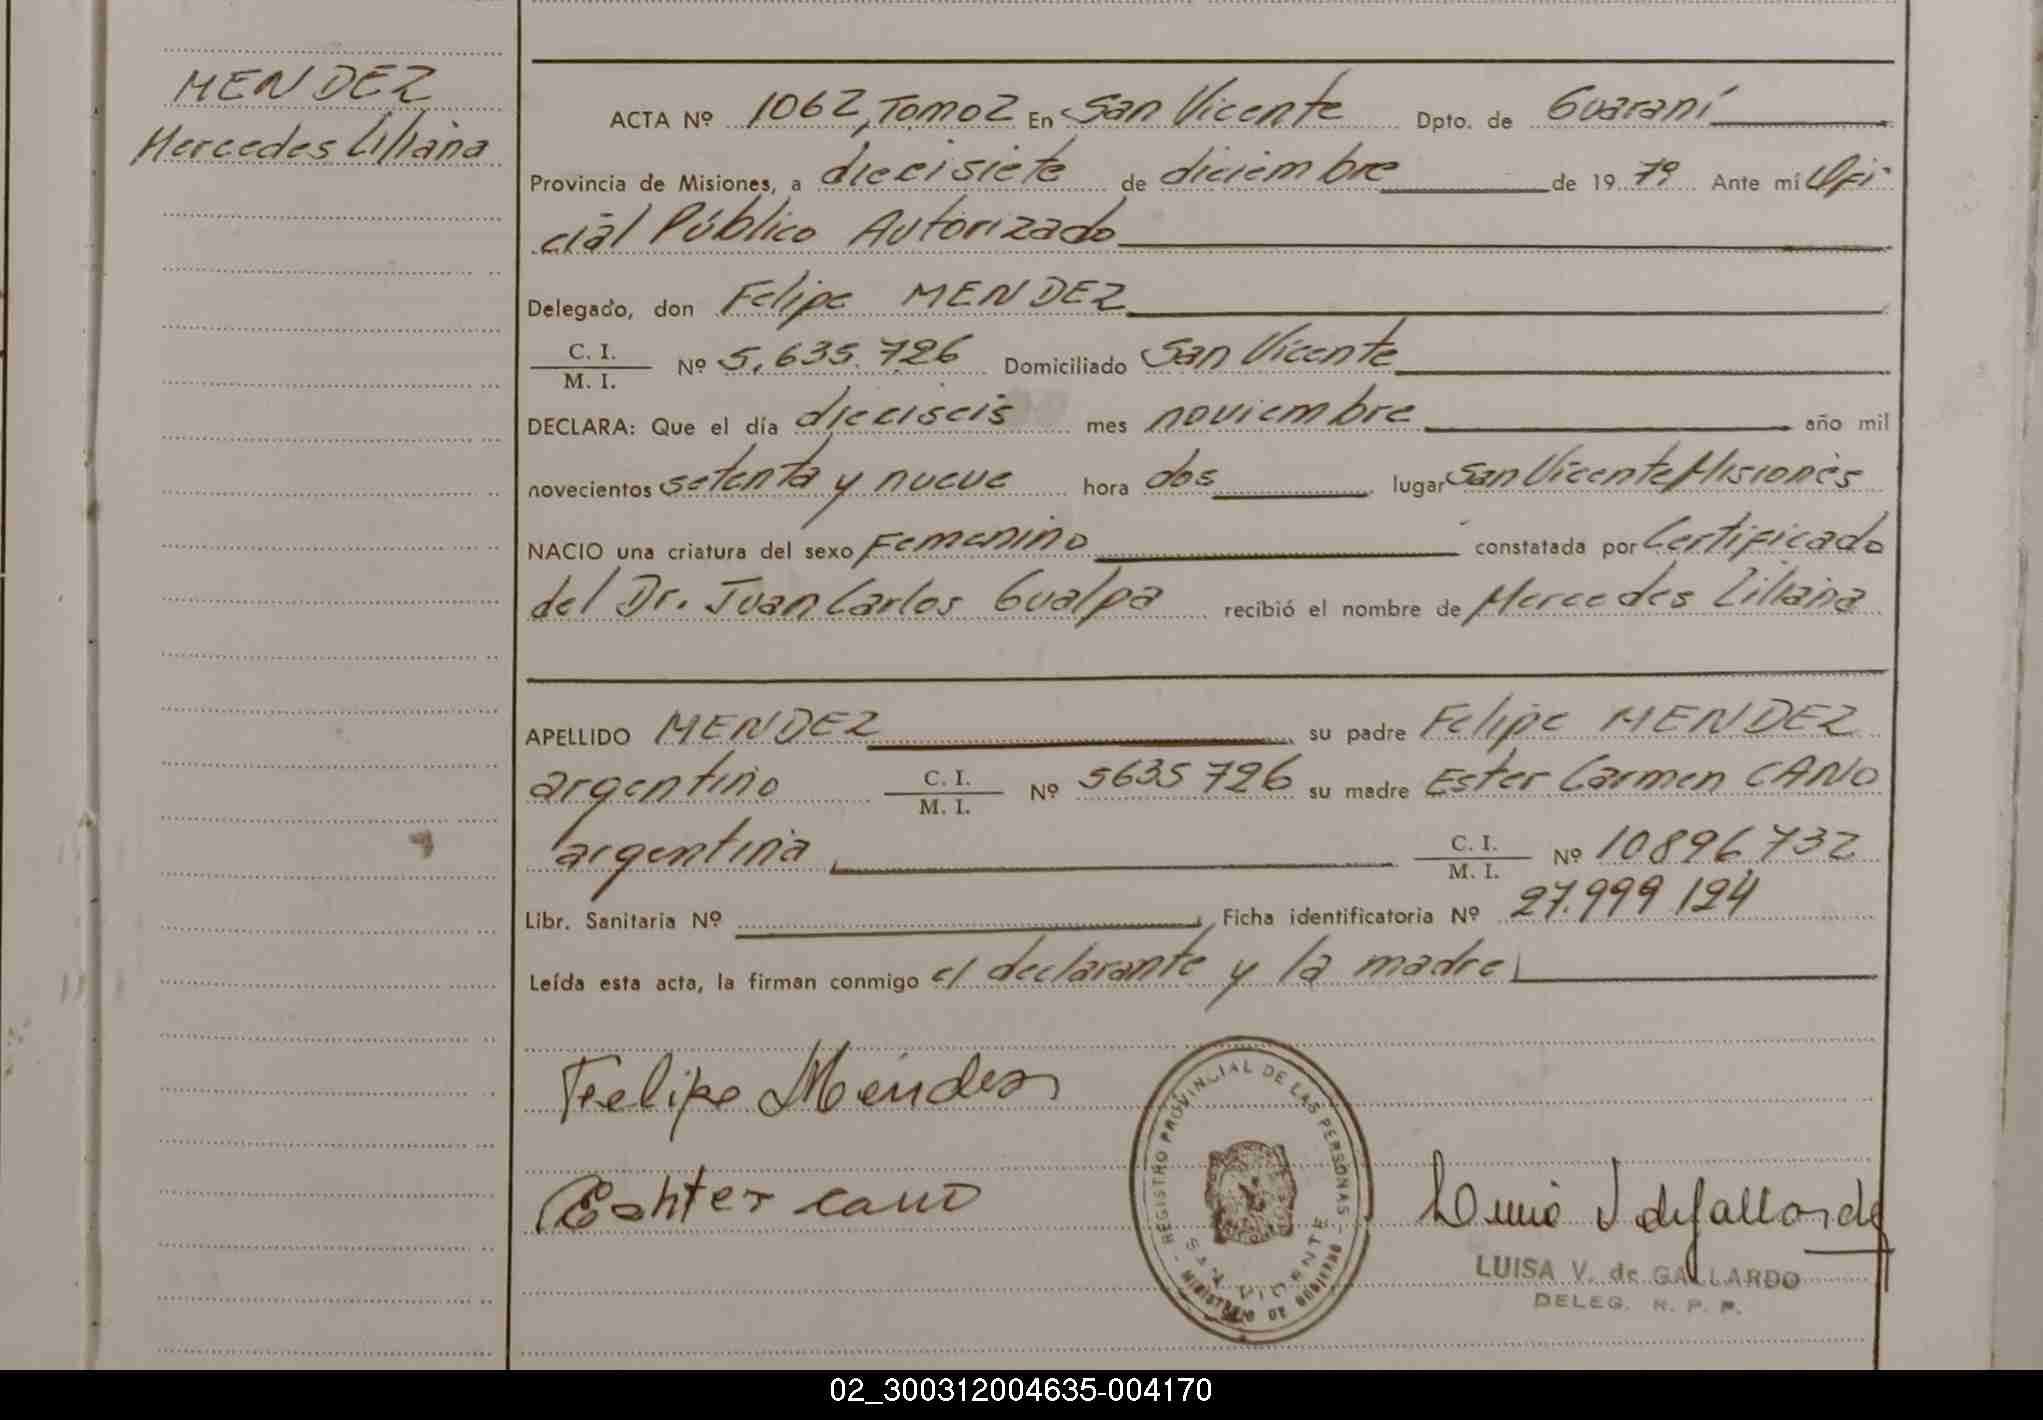 MENDEZ
Mercedes Liliana
ACTA Nº 1062, Tomo 2 En San Vicente Dpto. de Guaraní
Provincia de Misiones, a diecisiete de diciembre de 19 79 Ante mí Ofi
cial Público Autorizado
Delegado, don Felipe MENDEZ
C. I.
M. I. Nº 5.635.726 Domiciliado San Vicente
DECLARA: Que el día dieciseis mes noviembre año mil
novecientos setenta y nueve hora dos lugar San Vicente Misiones
NACIO una criatura del sexo Femenino constatada por Certificado
del Dr. Juan Carlos Gualpa recibió el nombre de Mercedes Liliana
APELLIDO MENDEZ su padre Felipe MENDEZ
argentino C. I.
M. I. Nº 5635726 su madre Ester Carmen CANO
argentina C. I.
M. I. Nº 10896732
Libr. Sanitaria Nº Ficha identificatoria Nº 27.999 124
Leída esta acta, la firman conmigo el declarante y la madre
Felipe Méndes
Eshter cano
REGISTRO PROVINCIAL DE LAS PERSONAS
SAN VICENTE
MINISTERIO DE GOBIERNO
LUISA V. de GALLARDO
DELEG. R. P. P.
02_300312004635-004170